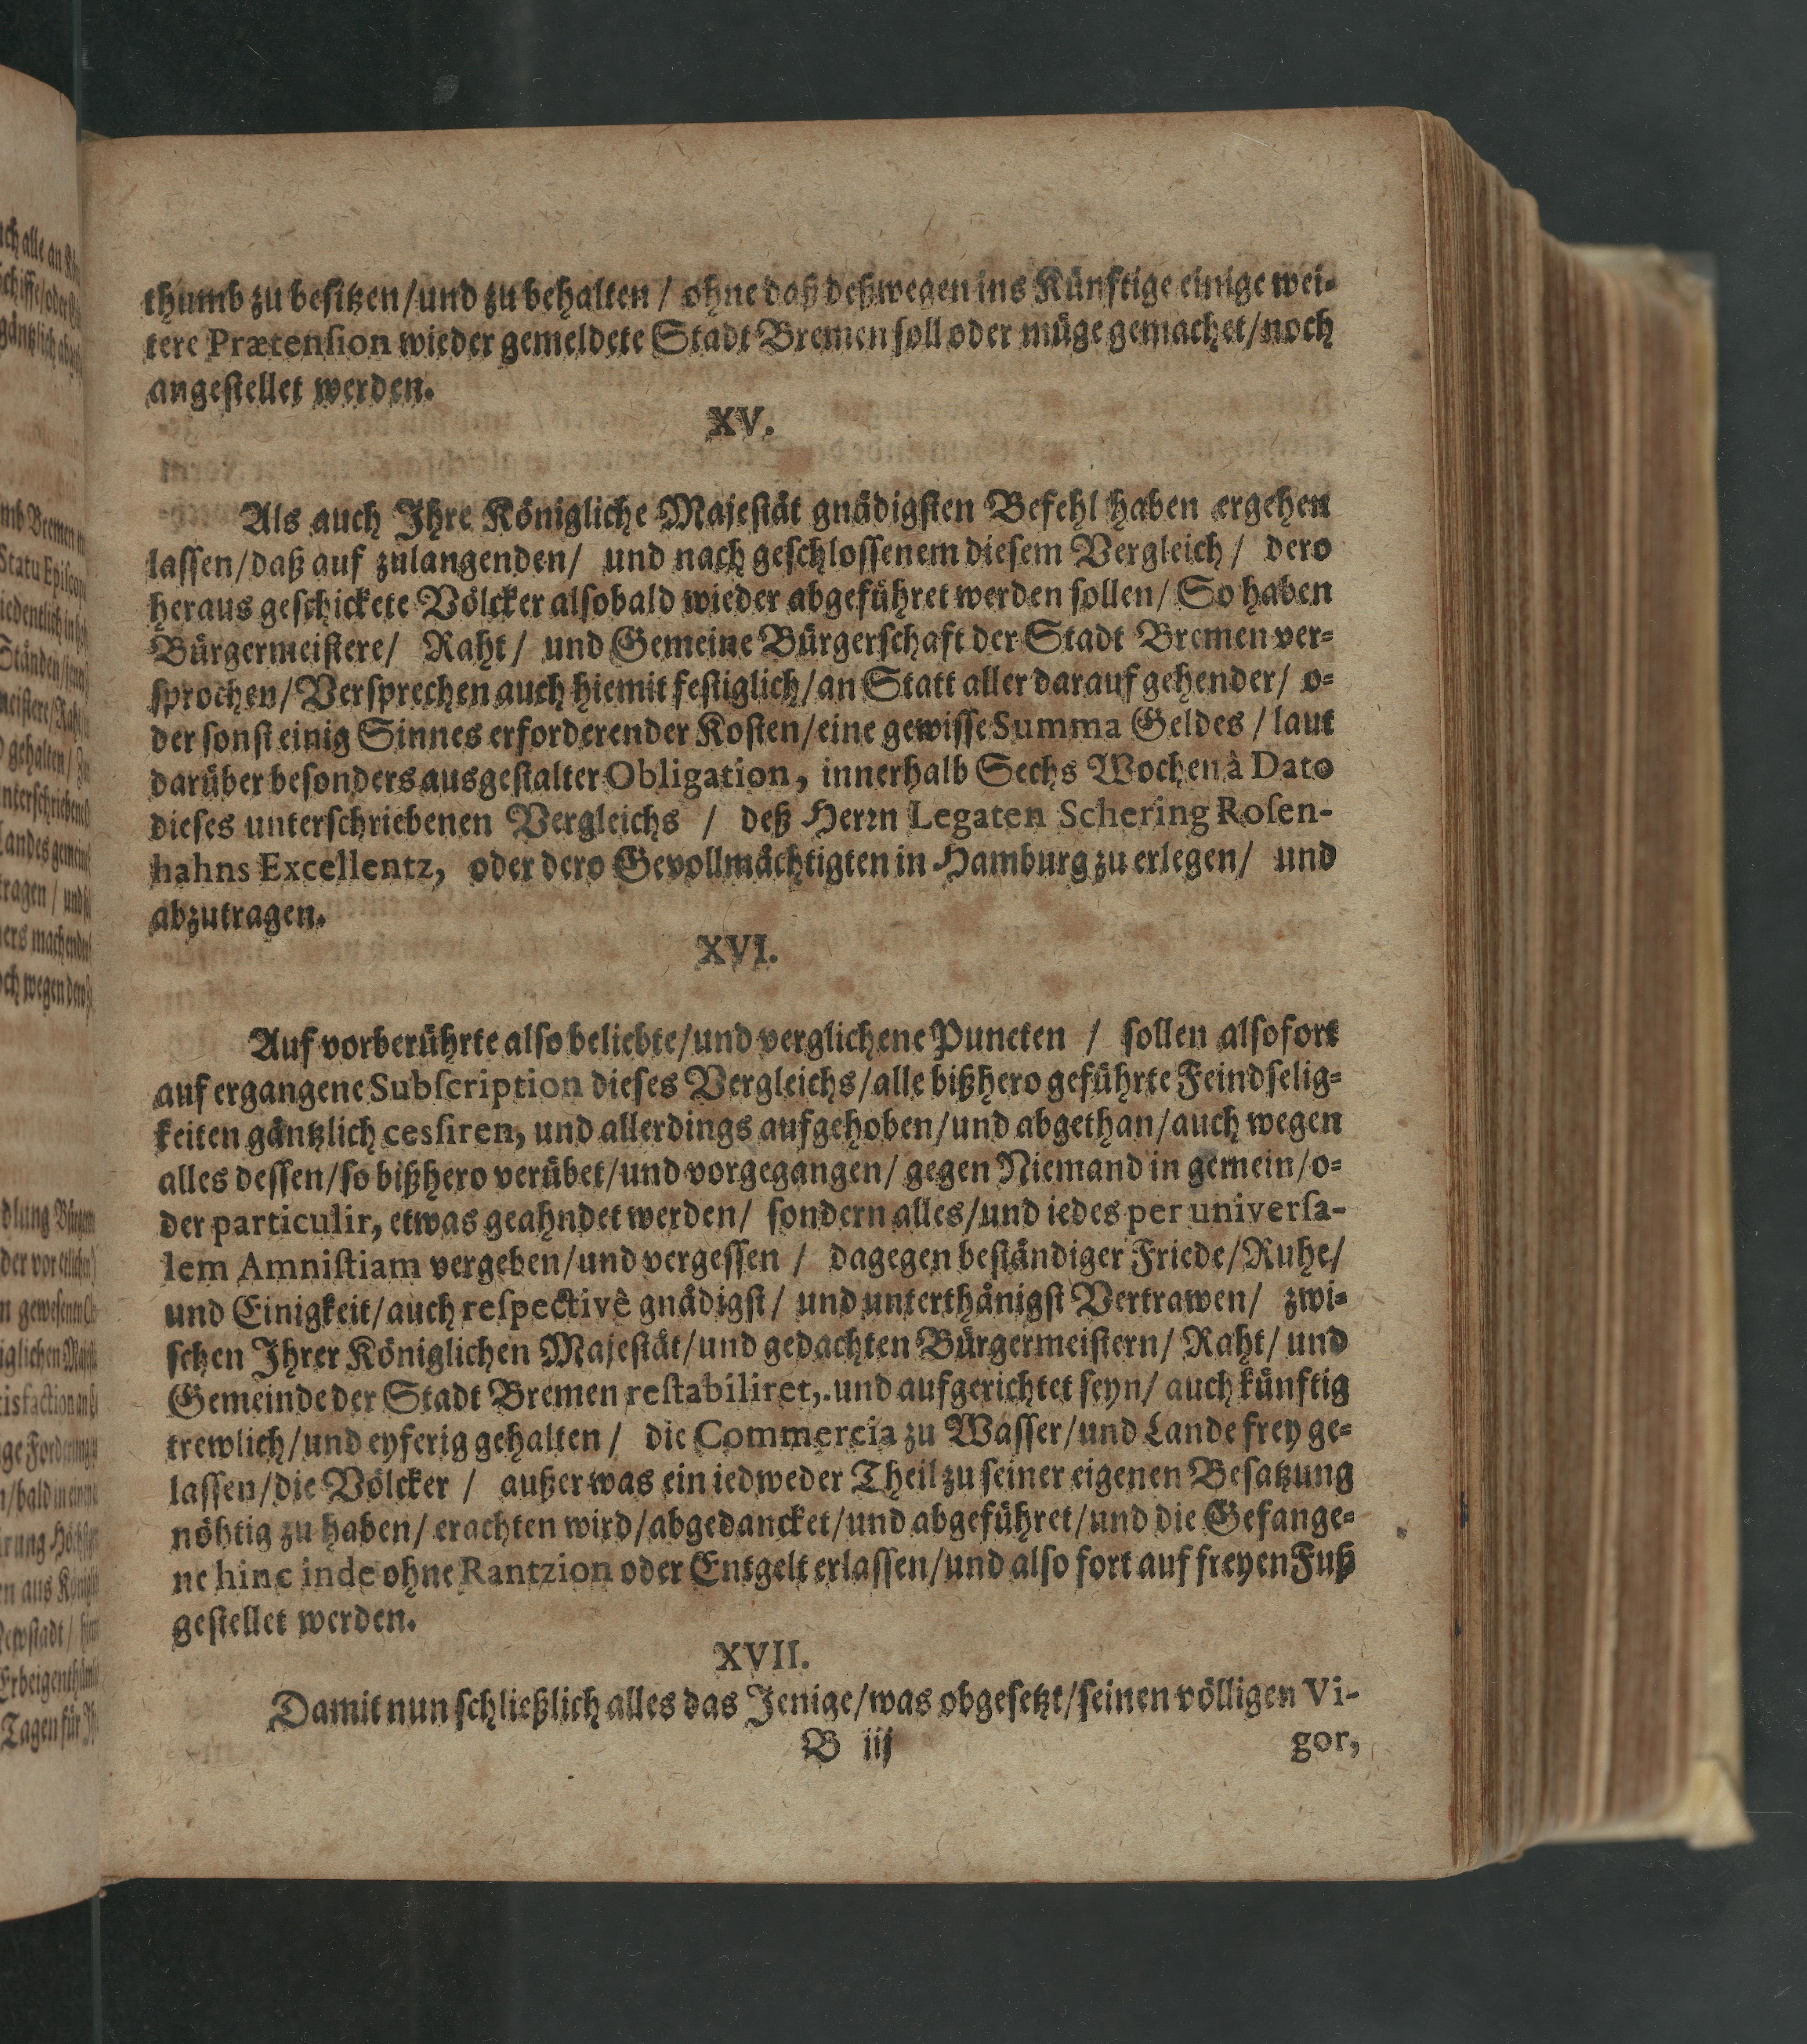 thumb zu besitzen/und zu behalten / ohne daß deßwegen ins Künftige einige wei-
tere Prætension wieder gemeldete Stadt Bremen soll oder müge gemachet/noch
angestellet werden.
XV.
Als auch Ihre Königliche Majestät gnädigsten Befehl haben ergehen
lassen/daß auf zulangenden/ und nach geschlossenem diesem Vergleich / dero
heraus geschickete Völcker alsobald wieder abgeführet werden sollen/ So haben
Bürgermeistere/ Raht/ und Gemeine Bürgerschaft der Stadt Bremen ver-
sprochen/Versprechen auch hiemit festiglich/an Statt aller darauf gehender/ o-
der sonst einig Sinnes erforderender Kosten/eine gewisse Summa Geldes /laut
darüber besonders ausgestalter Obligation, innerhalb Sechs Wochen à Dato
dieses unterschriebenen Vergleichs / deß Herrn Legaten Schering Rosen-
hahns Excellentz, oder dero Gevollmächtigten in Hamburg zu erlegen/ und
abzutragen.
XVI.
Auf vorberührte also beliebte/und verglichene Puncten / sollen alsofort
auf ergangene Subscription dieses Vergleichs/alle bißhero geführte Feindselig-
keiten gäntzlich cessiren, und allerdings aufgehoben/und abgethan/auch wegen
alles dessen/so bißhero verübet/und vorgegangen/ gegen Niemand in gemein/o-
der particulir, etwas geahndet werden/ sondern alles/und iedes per universa-
lem Amnistiam vergeben/und vergessen / dagegen beständiger Friede/Ruhe/
und Einigkeit/auch respectivè gnädigst/ und unterthänigst Vertrawen/ zwi-
schen Ihrer Königlichen Majestät/und gedachten Bürgermeistern/ Raht/ und
Gemeinde der Stadt Bremen restabiliret, und aufgerichtet seyn/ auch künftig
trewlich/und eyferig gehalten/ die Commercia zu Wasser/und Lande frey ge-
lassen/die Völcker / außer was ein iedweder Theil zu seiner eigenen Besatzung
nöhtig zu haben/ erachten wird/abgedancket/und abgeführet/und die Gefange-
ne hinc inde ohne Rantzion oder Entgelt erlassen/und also fort auf freyen Fuß
gestellet werden.
XVII.
Damit nun schließlich alles das Jenige/was obgesetzt/seinen völligen Vi-
B iij
gor,